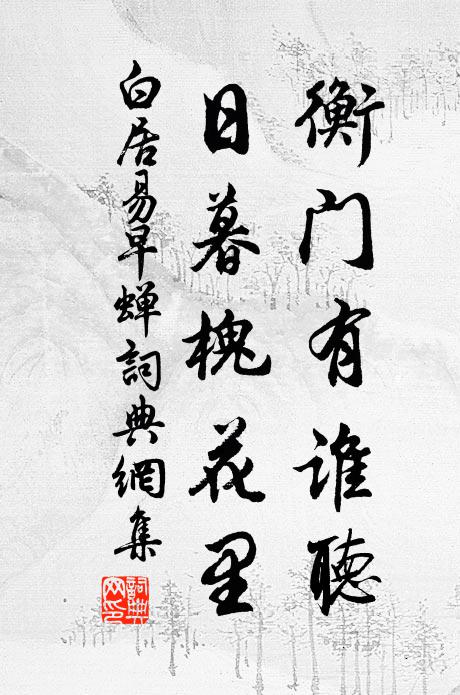 衡门有谁聽
日暮槐花里
白居易早蝉詞典網集
詞典网印